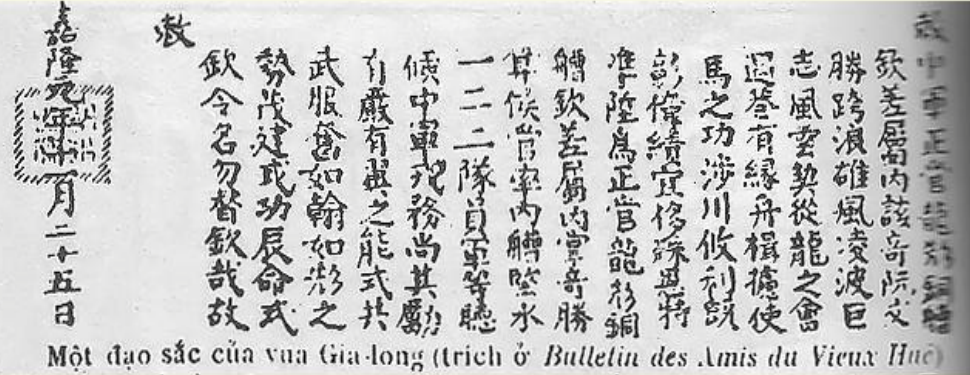 敕中軍正官龍芻銅艚
欽差屬內該奇阮文
勝跨浪雄風凌波巨
志風雲契從龍之會
遇有緣舟楫攄使
馬之功涉川攸利
彰偉績宜侈殊恩特
準陞爲正官龍芻銅
艚欽差屬內掌奇勝
侯管率內艚堅水
一二三隊員軍等聽
候中軍務尚其勵
有嚴有翼之能式共
武服奮如翰如之
勢茂建戎功辰命式
欽令名勿替欽哉故
敕
嘉隆元年十一月二十五日
Một đạo sắc của vua Gia-long (trích ở Bulletin des Amis du Vieux Huế)